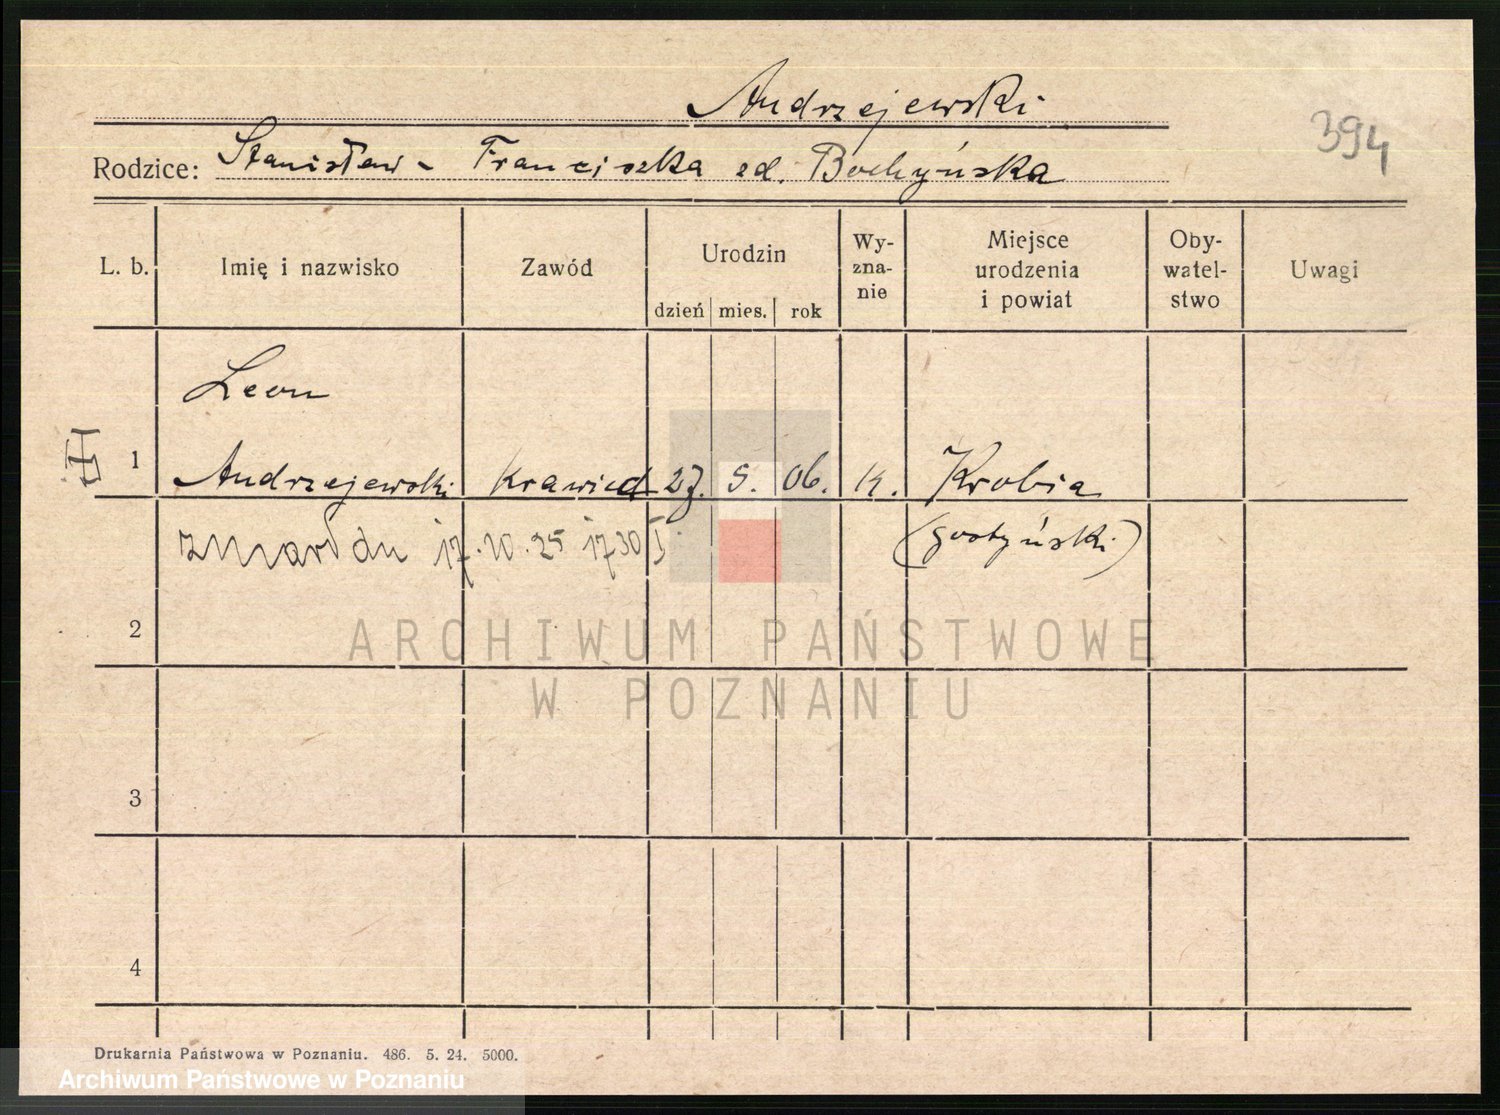 Andrzejewski
394
Rodzice: Stanisław - Franciszka zd. Bochyńska
L. b. Imię i nazwisko Zawód Urodzin dzień mies. rok Wy-zna-nie Miejsce urodzenia i powiat Oby-watel-stwo Uwagi
Leon
1 Andrzejewski krawiec 27. 5. 06. k. Krobia
zmarł dn 17.10.25 1730 I (gostyński)
2
ARCHIWUM PAŃSTWOWE
W POZNANIU
3
4
Drukarnia Państwowa w Poznaniu. 486. 5. 24. 5000.
Archiwum Państwowe w Poznaniu